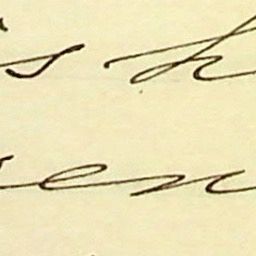 is h
en